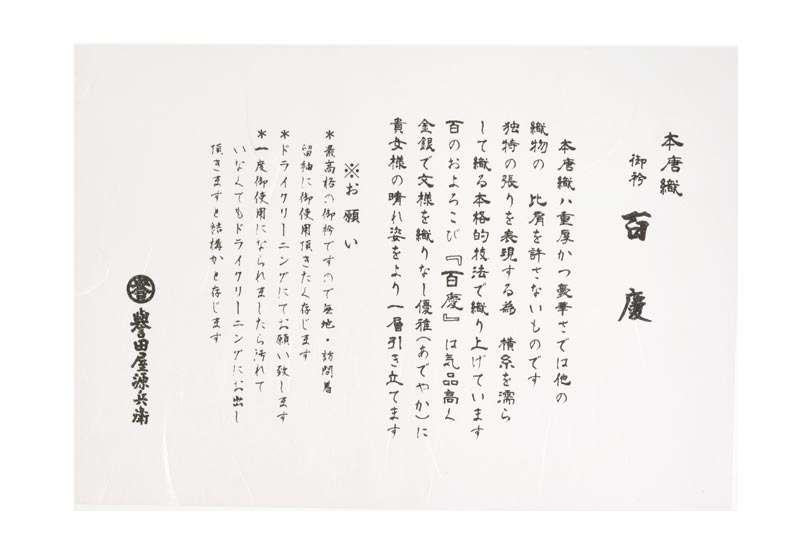 本唐織
御衿 百慶
本唐織ハ重厚かつ豪華さでは他の
織物の 比肩を許さないものです
独特の張りを表現する為 横糸を濡ら
して織る本格的技法で織り上げています
百のおよろこび『百慶』は気品高く
金銀で文様を織りなし優雅(あでやか)に
貴女様の晴れ姿をより一層引き立てます
※お願い
*最高格の御衿ですので無地・訪問着
留袖に御使用頂きたく存じます
*ドライクリーニングにてお願い致します
*一度御使用になられましたら汚れて
いなくてもドライクリーニングにお出し
頂きますと結構かと存じます
誉 誉田屋源兵衛